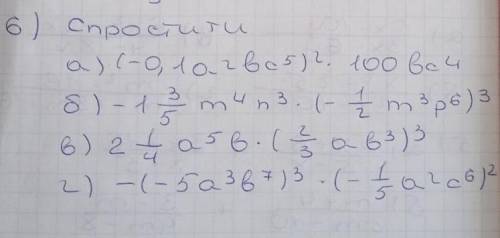 6) Спростити
а) (-0,1a²bc⁵)² · 100bc⁴
б) -1 3/5 m⁴n³ · (-1/2 m³p⁶)³
в) 2 1/4 a⁵b · (2/3 ab³)³
г) -(-5a³b⁷)³ · (-1/5 a²c⁶)²